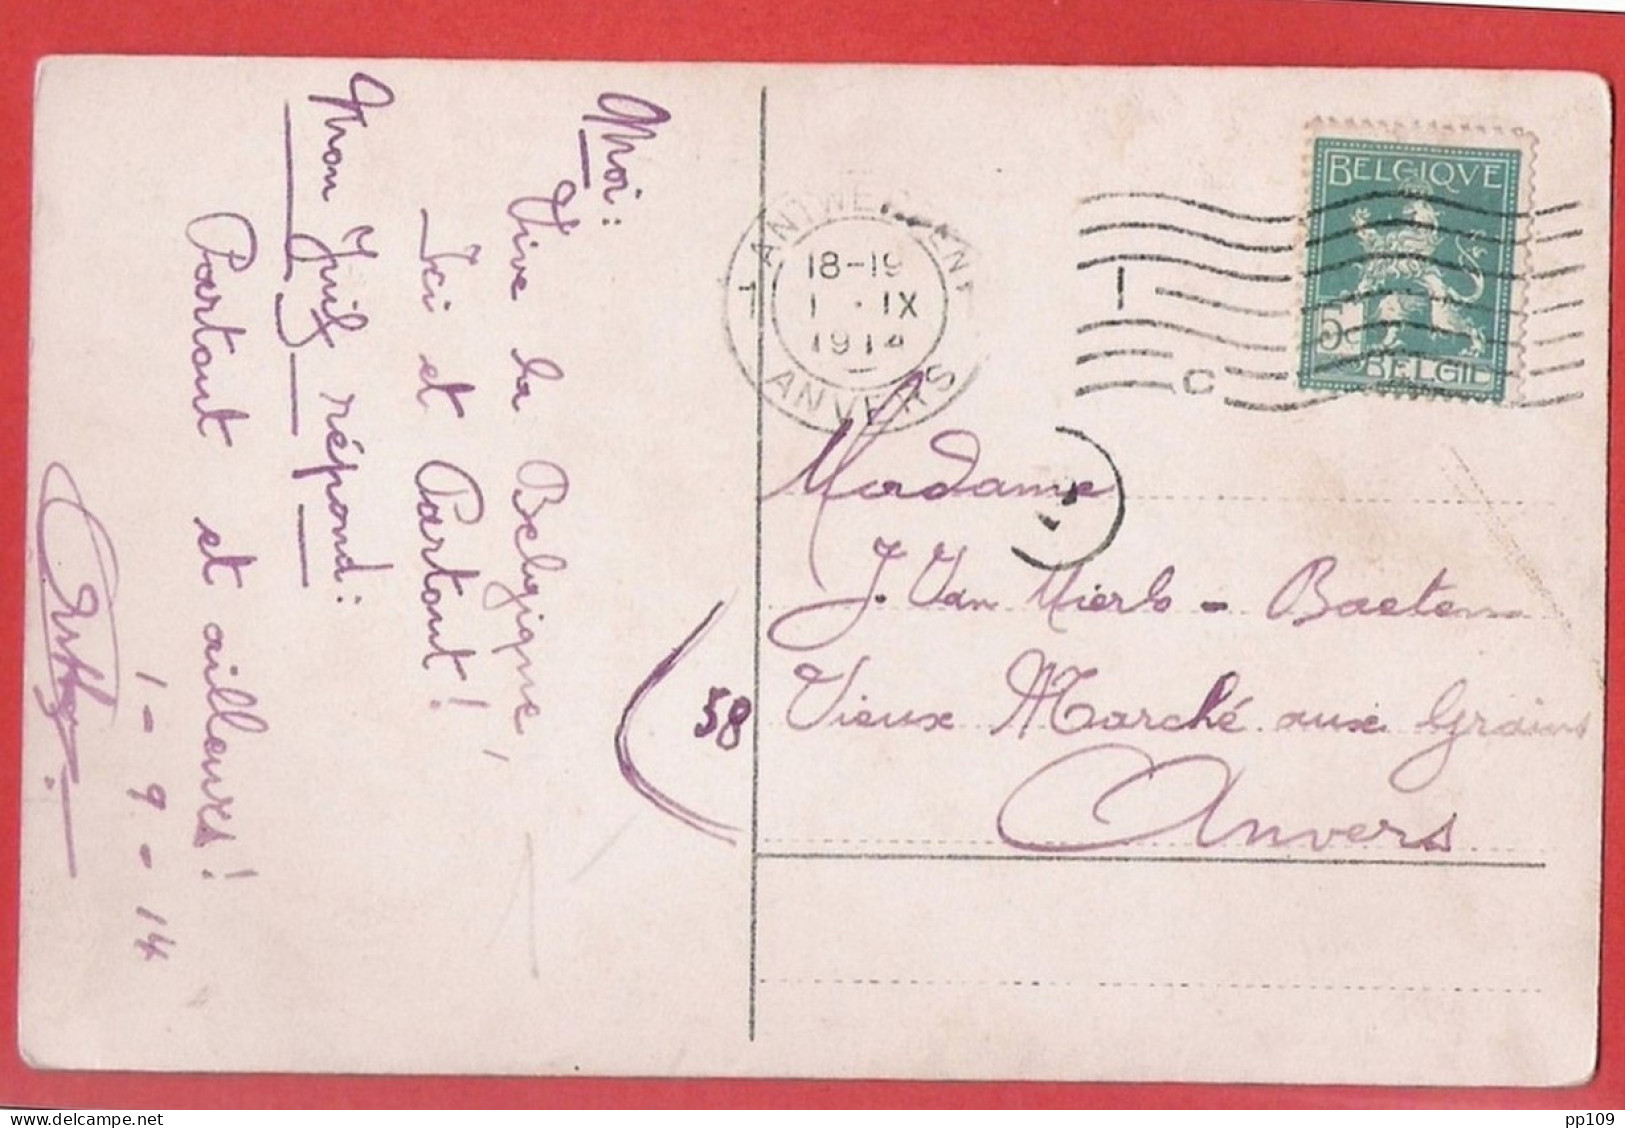 Moi:
Vive la Belgique,
Ici et Partout!
Mon Juif répond:
Partout et ailleurs!
1-9-14
58
ANTWERPEN
1
18-19
1 · IX
1914
ANVERS
1
C
BELGIQVE
5c
BELGIE
Madame
J. Van Mierlo - Baetens
Vieux Marché aux Grains
Anvers
pp109